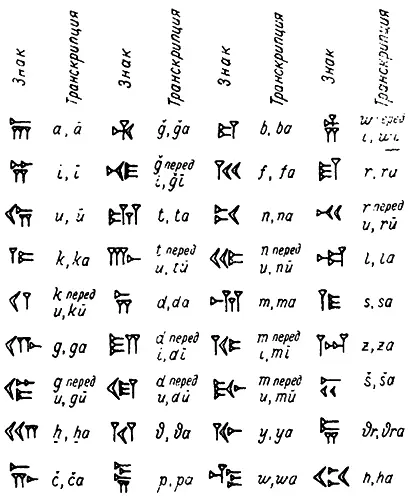 Знак Транскрипция Знак Транскрипция Знак Транскрипция Знак Транскрипция
𐎠 a, ā 𐎩 ǧ, ǧa 𐎲 b, ba 𐎻 w перед i,
𐎡 i, ī 𐎪 ǧ перед i, ǧī 𐎳 f, fa 𐎼 r, ra
𐎢 u, ū 𐎫 t, ta 𐎴 n, na 𐎽 r перед u, rū
𐎣 k, ka 𐎬 t перед u, tū 𐎵 n перед u, nū 𐎾 l, la
𐎤 k перед u, kū 𐎭 d, da 𐎶 m, ma 𐎿 s, sa
𐎥 g, ga 𐎮 d перед i, di 𐎷 m перед i, mī 𐏀 z, za
𐎦 g перед u, gū 𐎯 d перед u, dū 𐎸 m перед u, mū 𐏁 š, ša
𐎧 ḫ, ḫa 𐎰 ϑ, ϑa 𐎹 y, ya 𐏂 ϑr, ϑra
𐎨 č, ča 𐎱 p, pa 𐎺 w, wa 𐏃 h, ha